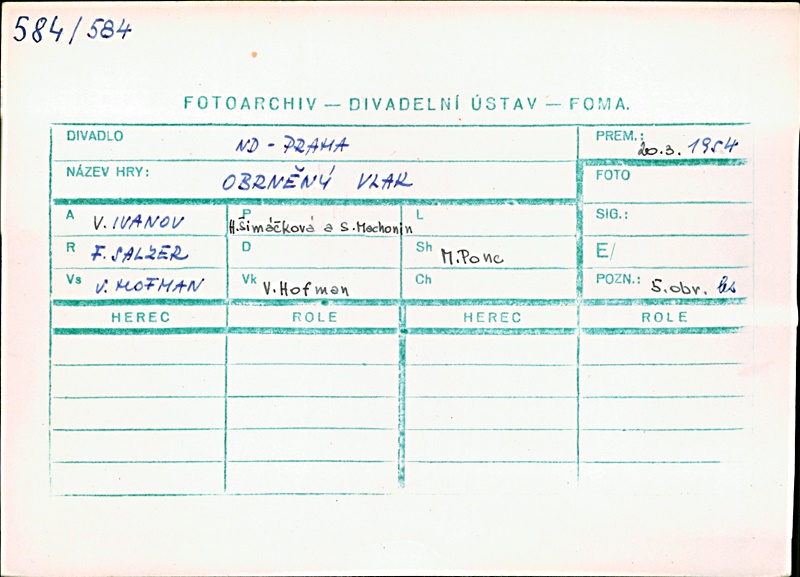 584/584
FOTOARCHIV — DIVADELNÍ ÚSTAV — FOMA.
DIVADLO ND - PRAHA PREM.: 20.3. 1954
NÁZEV HRY: OBRNĚNÝ VLAK FOTO
A V. IVANOV P H.Šimáčková a S.Machonin L SIG.:
R F. SALZER D Sh M.Ponc E/
Vs V. HOFMAN Vk V.Hofman Ch POZN.: 5.obr.
HEREC ROLE HEREC ROLE